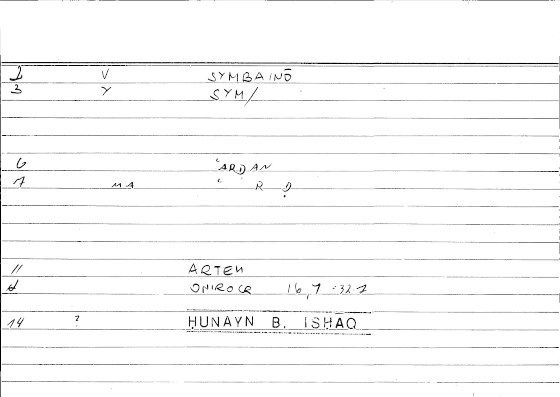 2 V SYMBAINŌ
3 Y SYM/
6 ʿARḌAN
7 MA ʿ R Ḍ
11 ARTEM
ONIROCR 16,7
14 ? ḤUNAYN B. ISḤĀQ